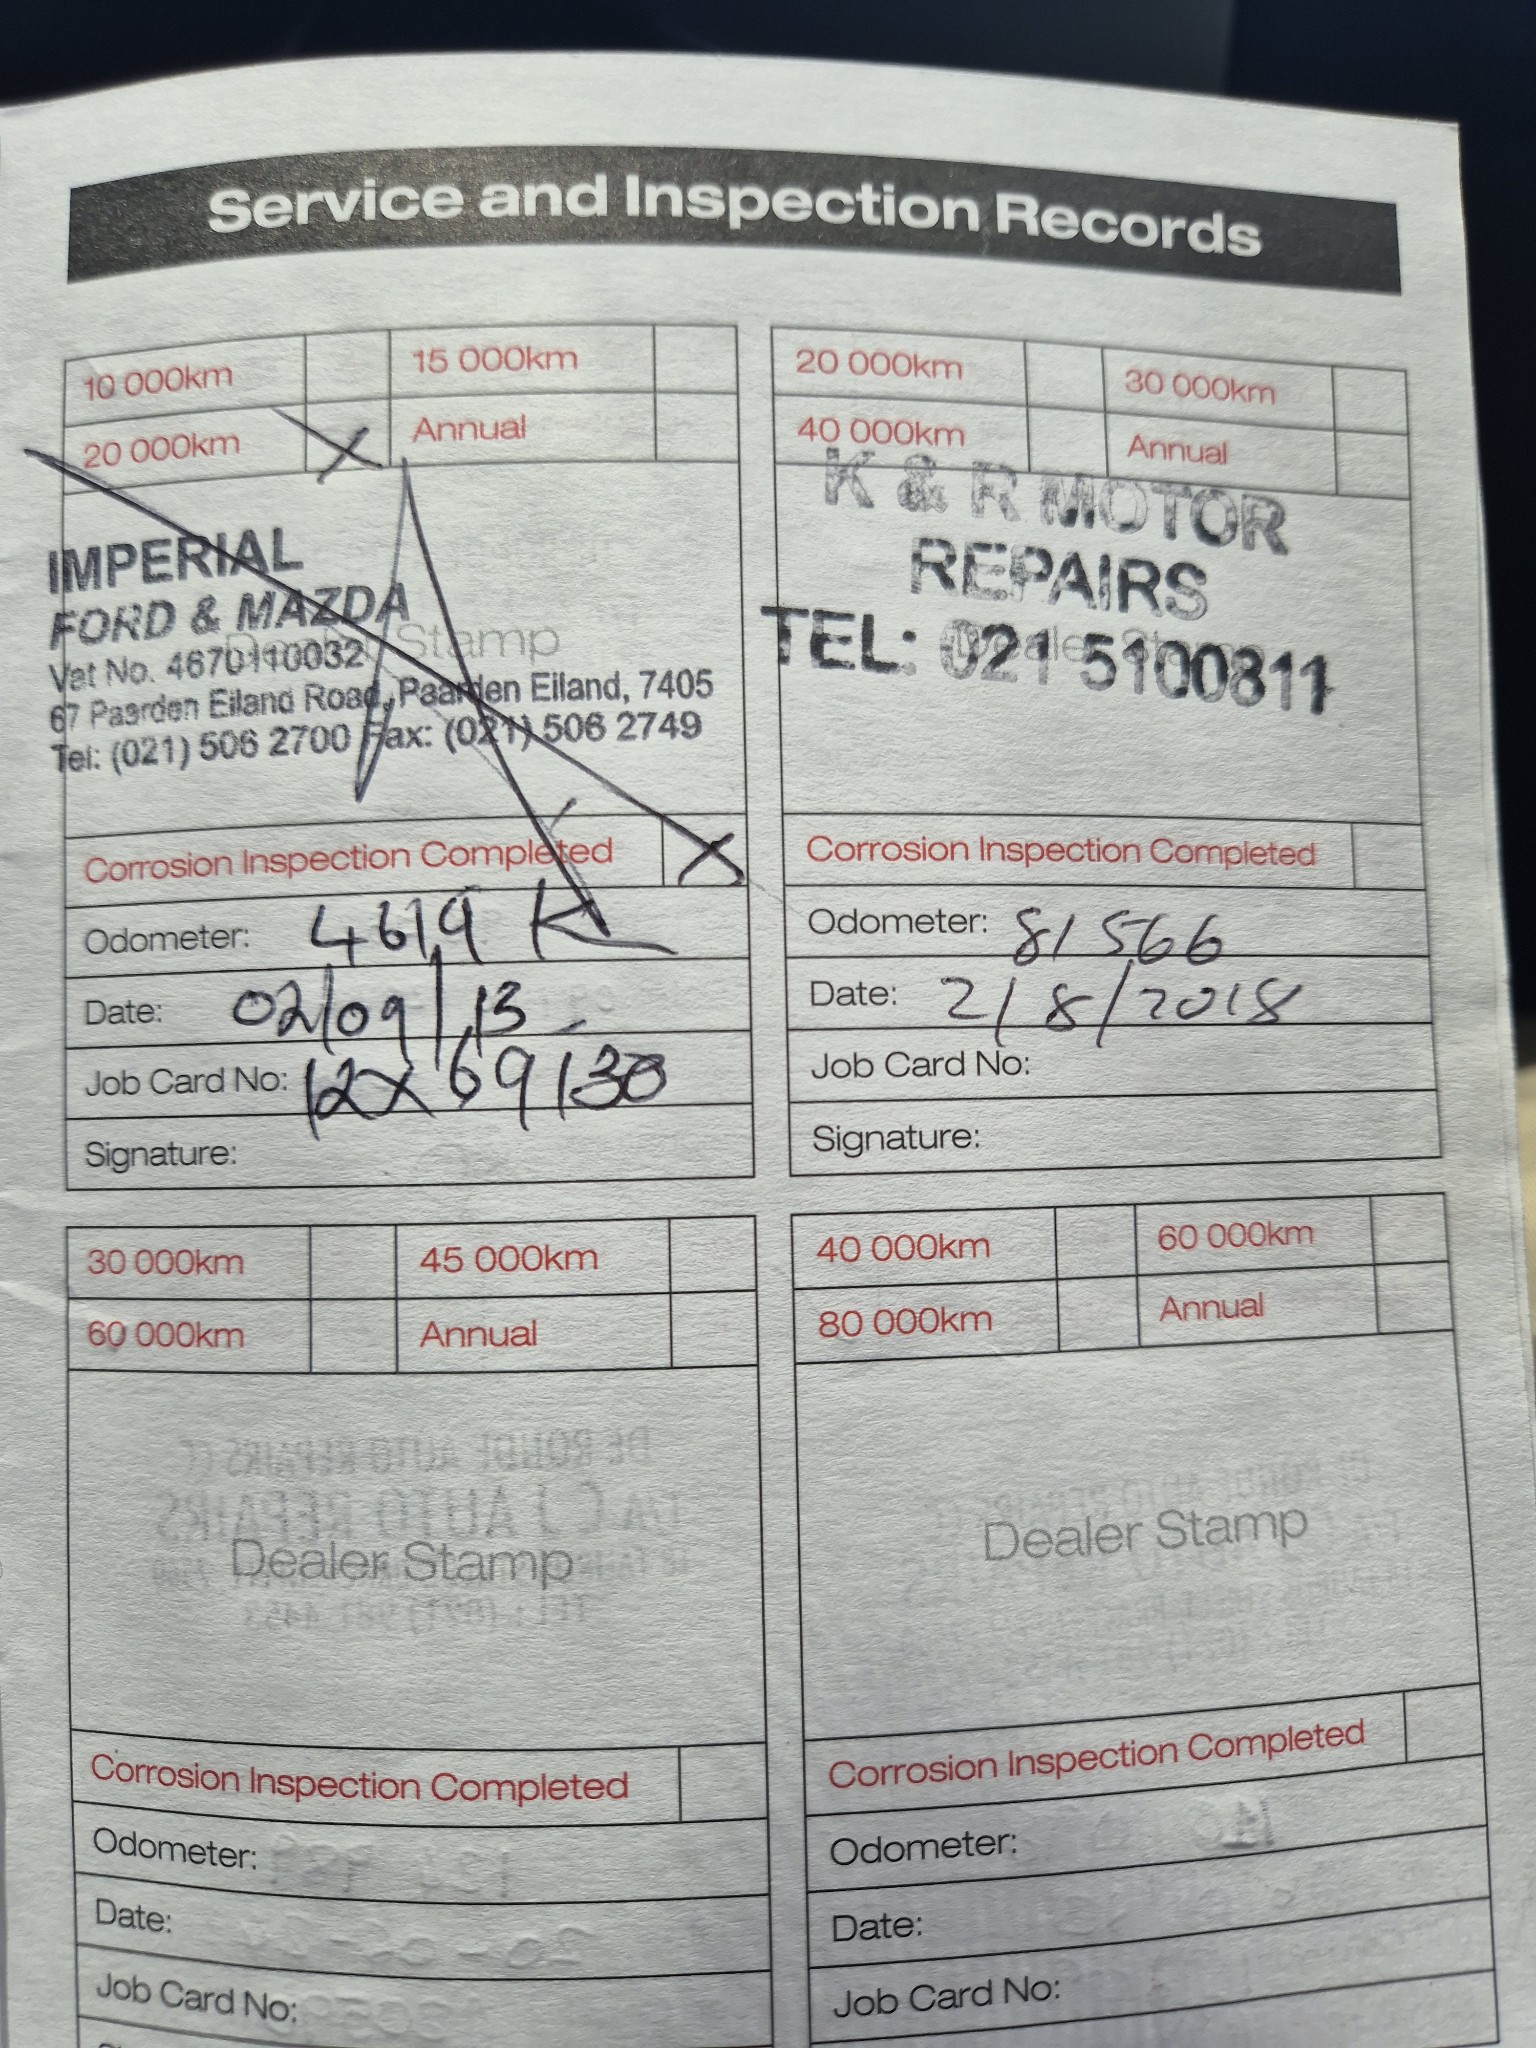 Service and Inspection Records
10 000km 15 000km
20 000km X Annual
IMPERIAL
FORD & MAZDA
Dealer Stamp
Vat No. 4670110032
67 Paarden Eiland Road, Paarden Eiland, 7405
Tel: (021) 506 2700 Fax: (021) 506 2749
Corrosion Inspection Completed X
Odometer: 4619 K
Date: 02/09/13
Job Card No: 12X69130
Signature:
20 000km 30 000km
40 000km Annual
K & R MOTOR
REPAIRS
Dealer Stamp
TEL: 021 5100811
Corrosion Inspection Completed
Odometer: 81566
Date: 2/8/2018
Job Card No:
Signature:
30 000km 45 000km
60 000km Annual
Dealer Stamp
Corrosion Inspection Completed
Odometer:
Date:
Job Card No:
40 000km 60 000km
80 000km Annual
Dealer Stamp
Corrosion Inspection Completed
Odometer:
Date:
Job Card No: